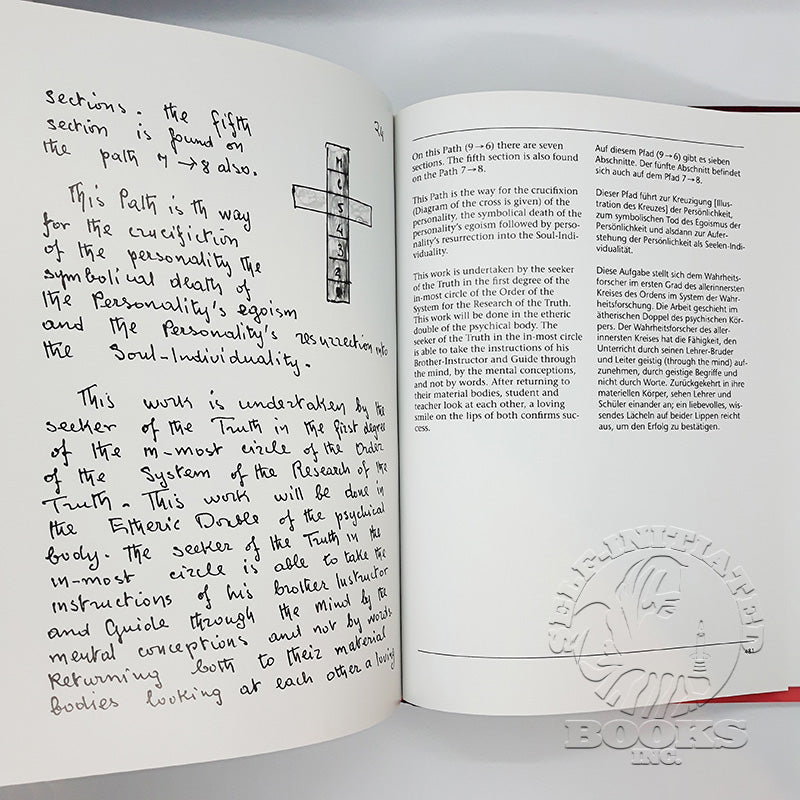 sections. the fifth
section is found on
the path 7→8 also.
24
This Path is th way
for the crucifiction
of the personality the
symbolical death of
the Personality's egoism
and the Personality's resurrection into
the Soul-Individuality.
This work is undertaken by the
seeker of the Truth in the first degree
of the in-most circle of the Order
of the System of the Research of the
Truth. This work will be done in
the Etheric Double of the psychical
body. The seeker of the Truth in the
in-most circle is able to take the
instructions of his brother Instructor
and Guide through the mind by the
mental conceptions and not by words.
Returning both to their material
bodies looking at each other a loving
7
6
5
4
3
2
On this Path (9→6) there are seven
sections. The fifth section is also found
on the Path 7→8.
This Path is the way for the crucifixion
(Diagram of the cross is given) of the
personality, the symbolical death of the
personality's egoism followed by perso-
nality's resurrection into the Soul-Indi-
viduality.
This work is undertaken by the seeker
of the Truth in the first degree of the
in-most circle of the Order of the
System for the Research of the Truth.
This work will be done in the etheric
double of the psychical body. The
seeker of the Truth in the in-most circle
is able to take the instructions of his
Brother-Instructor and Guide through
the mind, by the mental conceptions,
and not by words. After returning to
their material bodies, student and
teacher look at each other, a loving
smile on the lips of both confirms suc-
cess.
Auf diesem Pfad (9→6) gibt es sieben
Abschnitte. Der fünfte Abschnitt befindet
sich auch auf dem Pfad 7→8.
Dieser Pfad führt zur Kreuzigung [Illus-
tration des Kreuzes] der Persönlichkeit,
zum symbolischen Tod des Egoismus der
Persönlichkeit und alsdann zur Aufer-
stehung der Persönlichkeit als Seelen-Indi-
vidualität.
Diese Aufgabe stellt sich dem Wahrheits-
forscher im ersten Grad des allerinnersten
Kreises des Ordens im System der Wahr-
heitsforschung. Die Arbeit geschieht im
ätherischen Doppel des psychischen Kör-
pers. Der Wahrheitsforscher des aller-
innersten Kreises hat die Fähigkeit, den
Unterricht durch seinen Lehrer-Bruder
und Leiter geistig (through the mind) auf-
zunehmen, durch geistige Begriffe und
nicht durch Worte. Zurückgekehrt in ihre
materiellen Körper, sehen Lehrer und
Schüler einander an; ein liebevolles, wis-
sendes Lächeln auf beider Lippen reicht
aus, um den Erfolg zu bestätigen.
SELF-INITIATED
BOOKS
INC.